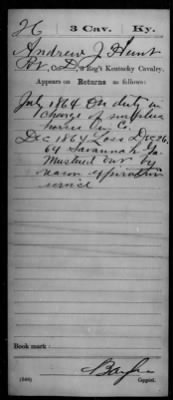 H | 3 Cav. | Ky.
Andrew J Hunt
Pvt, Co. D, 3 Reg't Kentucky Cavalry.
Appears on Returns as follows:
July 1864 On duty in
charge of
horses Co.
Dec 1864 Loss Dec 26,
64 Savannah Ga.
Mustered out by
reason expiration
service
Book mark:
(546)
Copyist.